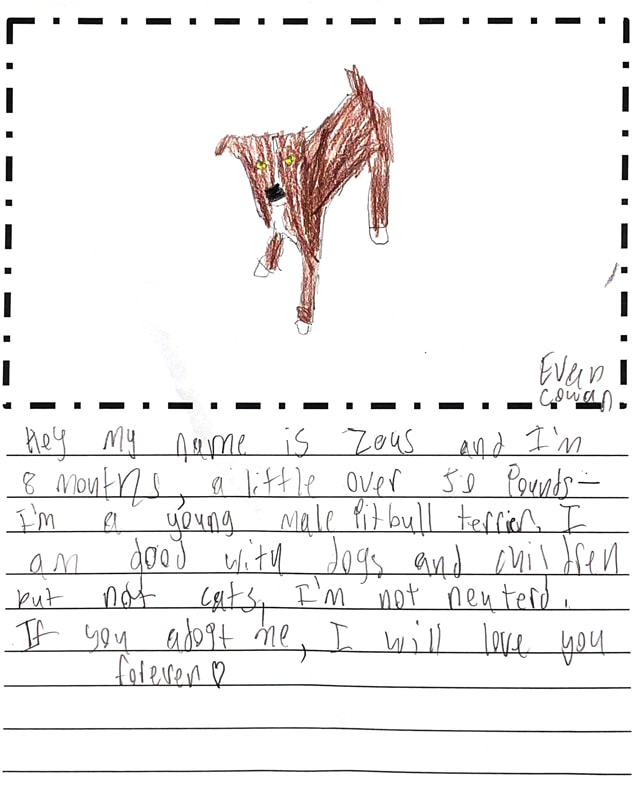 Evan
Cowan
Hey my name is Zeus and I'm
8 months, a little over 50 Pounds-
I'm a young male Pitbull terrier. I
am good with dogs and children
but not cats, I'm not neuterd.
If you adopt me, I will love you
forever♡